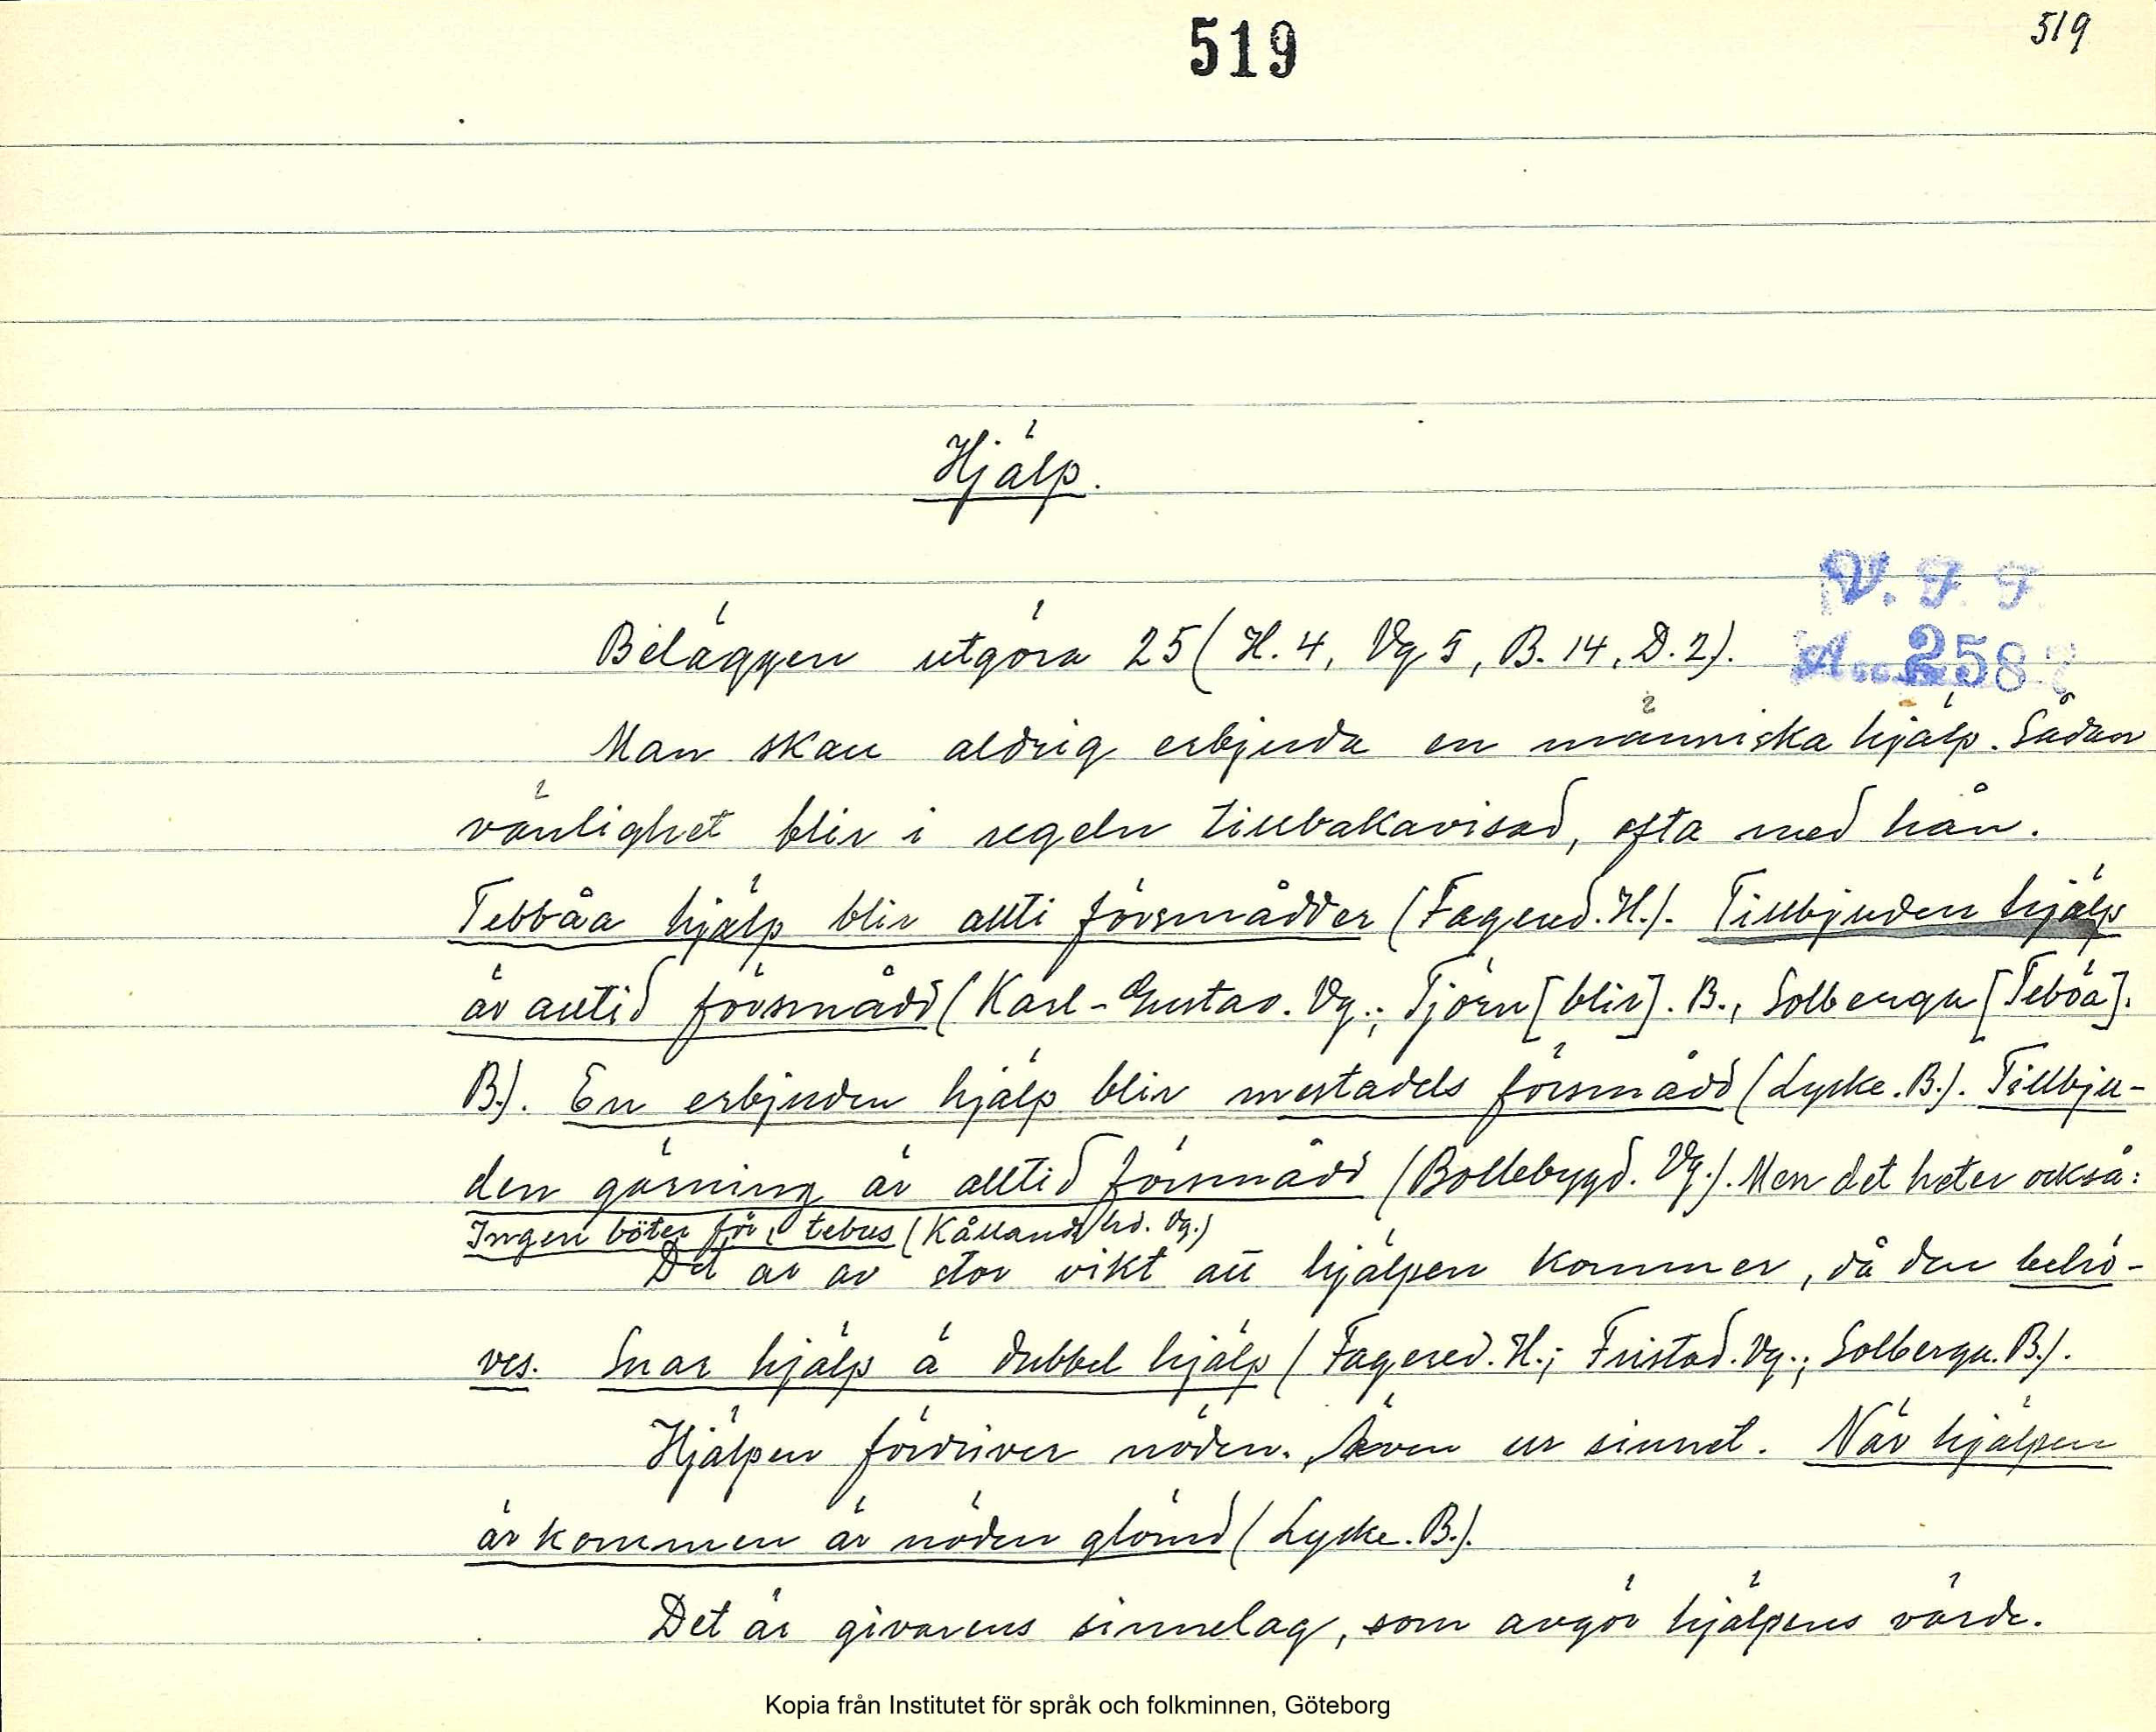 519
519
Hjälp.
V. F. F.
Beläggen utgöra 25 (H. 4, Vg 5, B. 14, D. 2).
Acc 258
Man skall aldrig erbjuda en människa hjälp. Sådan
vänlighet blir i regeln tillbakavisad, ofta med hån.
Tebbåa hjälp blir allti försmådder (Fagered. H.). Tillbjuden hjälp
är alltid försmådd (Karl-Gustav. Vg.; Tjörn [blir]. B., Solberga [Teböa].
B.). En erbjuden hjälp blir mestadels försmådd (Lycke. B.). Tillbju-
den gärning är alltid försmådd (Bollebygd. Vg.). Men det heter också:
Ingen böter för tebus (Kållands hd. Vg.)
Det är av stor vikt att hjälpen kommer, då den behö-
ves. Snar hjälp ä dubbel hjälp (Fagered. H.; Fristad. Vg.; Solberga. B.).
Hjälpen fördriver nöden. Även ur sinnet. När hjälpen
är kommen är nöden glömd (Lycke. B.).
Det är givarens sinnelag, som avgör hjälpens värde.
Kopia från Institutet för språk och folkminnen, Göteborg